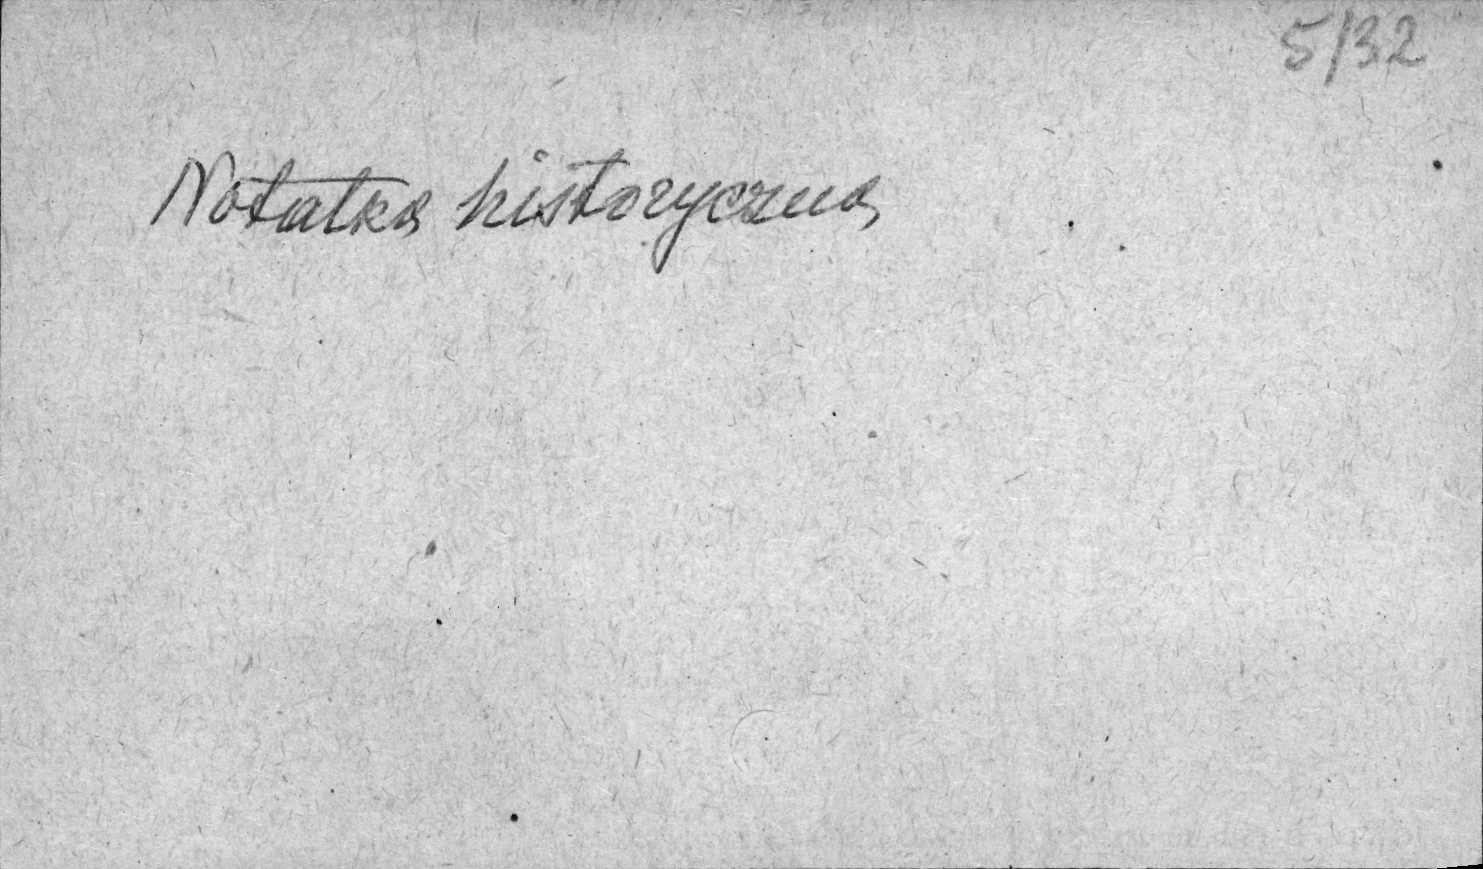 5/32
Notatka historyczna